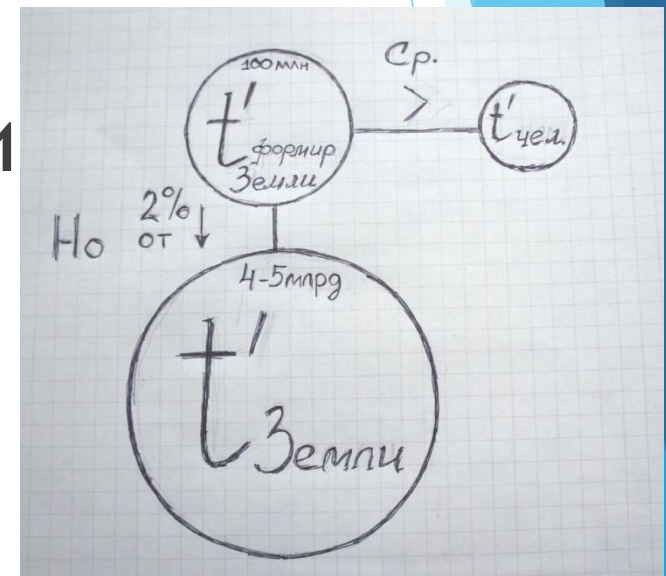 100 млн
t'
формир
Земли
Ср.
>
t' чел.
Но
2%
от ↓
4-5млрд
t' Земли